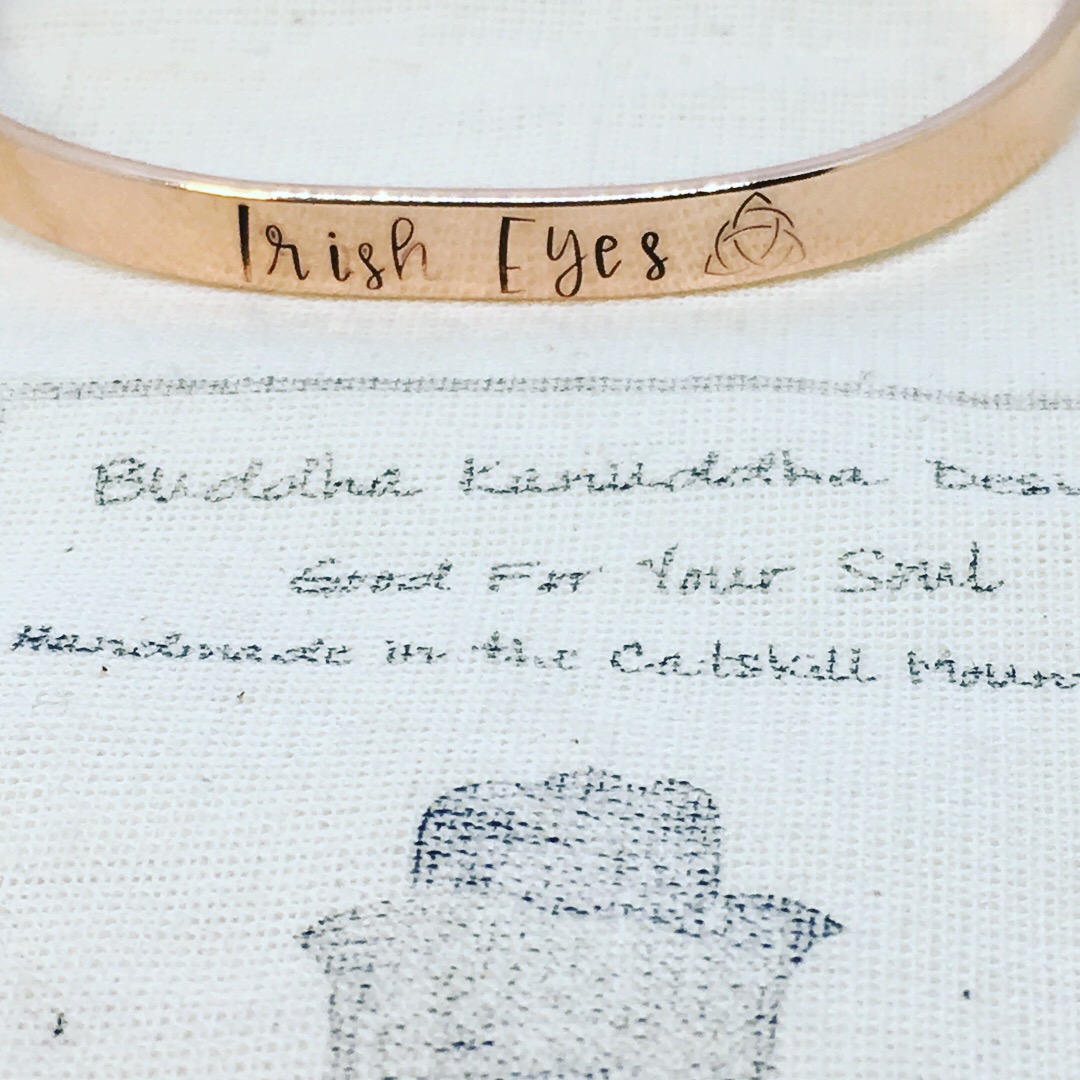 Irish Eyes
Buddha Karuddha Des
Good For Your Soul
Handmade in the Catskill Moun